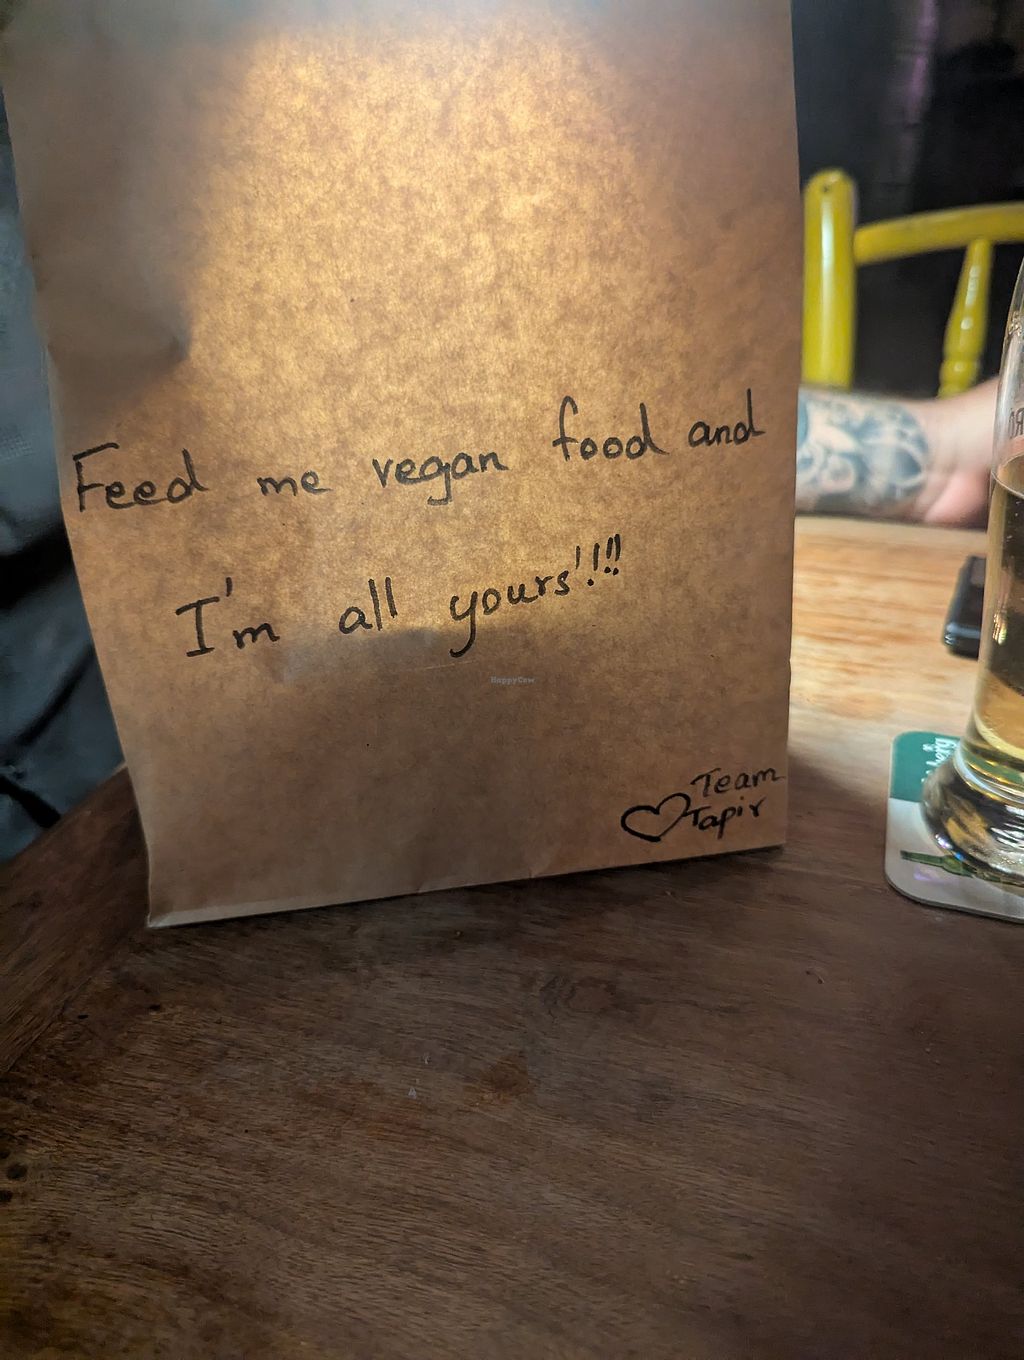 Feed me vegan food and
I'm all yours!!!
HappyCow
Team
Tapir